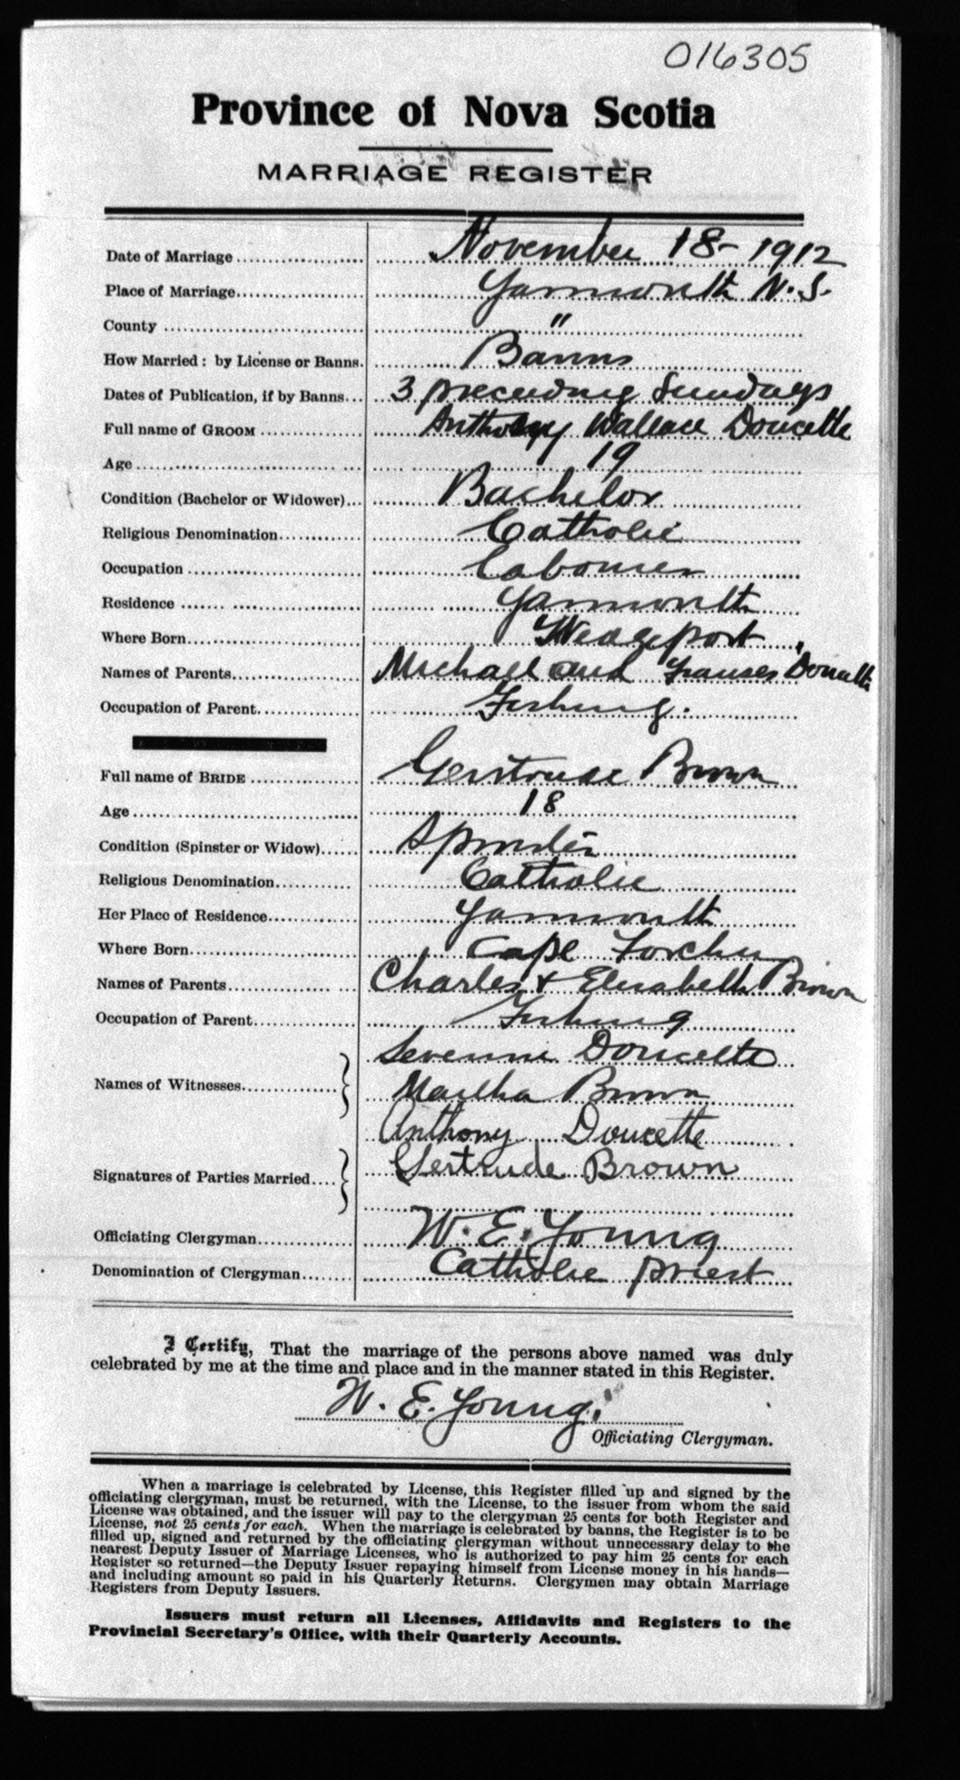 016305
Province of Nova Scotia
MARRIAGE REGISTER
Date of Marriage November 18 - 1912
Place of Marriage Yarmouth N. S.
County "
How Married: by License or Banns. Banns
Dates of Publication, if by Banns 3 preceeding Sundays
Full name of GROOM Anthony Wallace Doucette
Age 19
Condition (Bachelor or Widower) Bachelor
Religious Denomination Catholic
Occupation Labourer
Residence Yarmouth
Where Born Wedgeport
Names of Parents Michael and Frances Doucette
Occupation of Parent Fishing.
Full name of BRIDE Gertrude Brown
Age 18
Condition (Spinster or Widow) Spinster
Religious Denomination Catholic
Her Place of Residence Yarmouth
Where Born Cape Forchu
Names of Parents Charles & Elizabeth Brown
Occupation of Parent Fishing
Doucette
Names of Witnesses Martha Brown
Anthony Doucette
Signatures of Parties Married Gertrude Brown
Officiating Clergyman W. E. Young
Denomination of Clergyman Catholic priest
I Certify, That the marriage of the persons above named was duly
celebrated by me at the time and place and in the manner stated in this Register.
W. E. Young
Officiating Clergyman.
When a marriage is celebrated by License, this Register filled up and signed by the
officiating clergyman, must be returned, with the License, to the issuer from whom the said
License was obtained, and the issuer will pay to the clergyman 25 cents for both Register and
License, not 25 cents for each. When the marriage is celebrated by banns, the Register is to be
filled up, signed and returned by the officiating clergyman without unnecessary delay to the
nearest Deputy Issuer of Marriage Licenses, who is authorized to pay him 25 cents for each
Register so returned—the Deputy Issuer repaying himself from License money in his hands—
and including amount so paid in his Quarterly Returns. Clergymen may obtain Marriage
Registers from Deputy Issuers.
Issuers must return all Licenses, Affidavits and Registers to the
Provincial Secretary's Office, with their Quarterly Accounts.